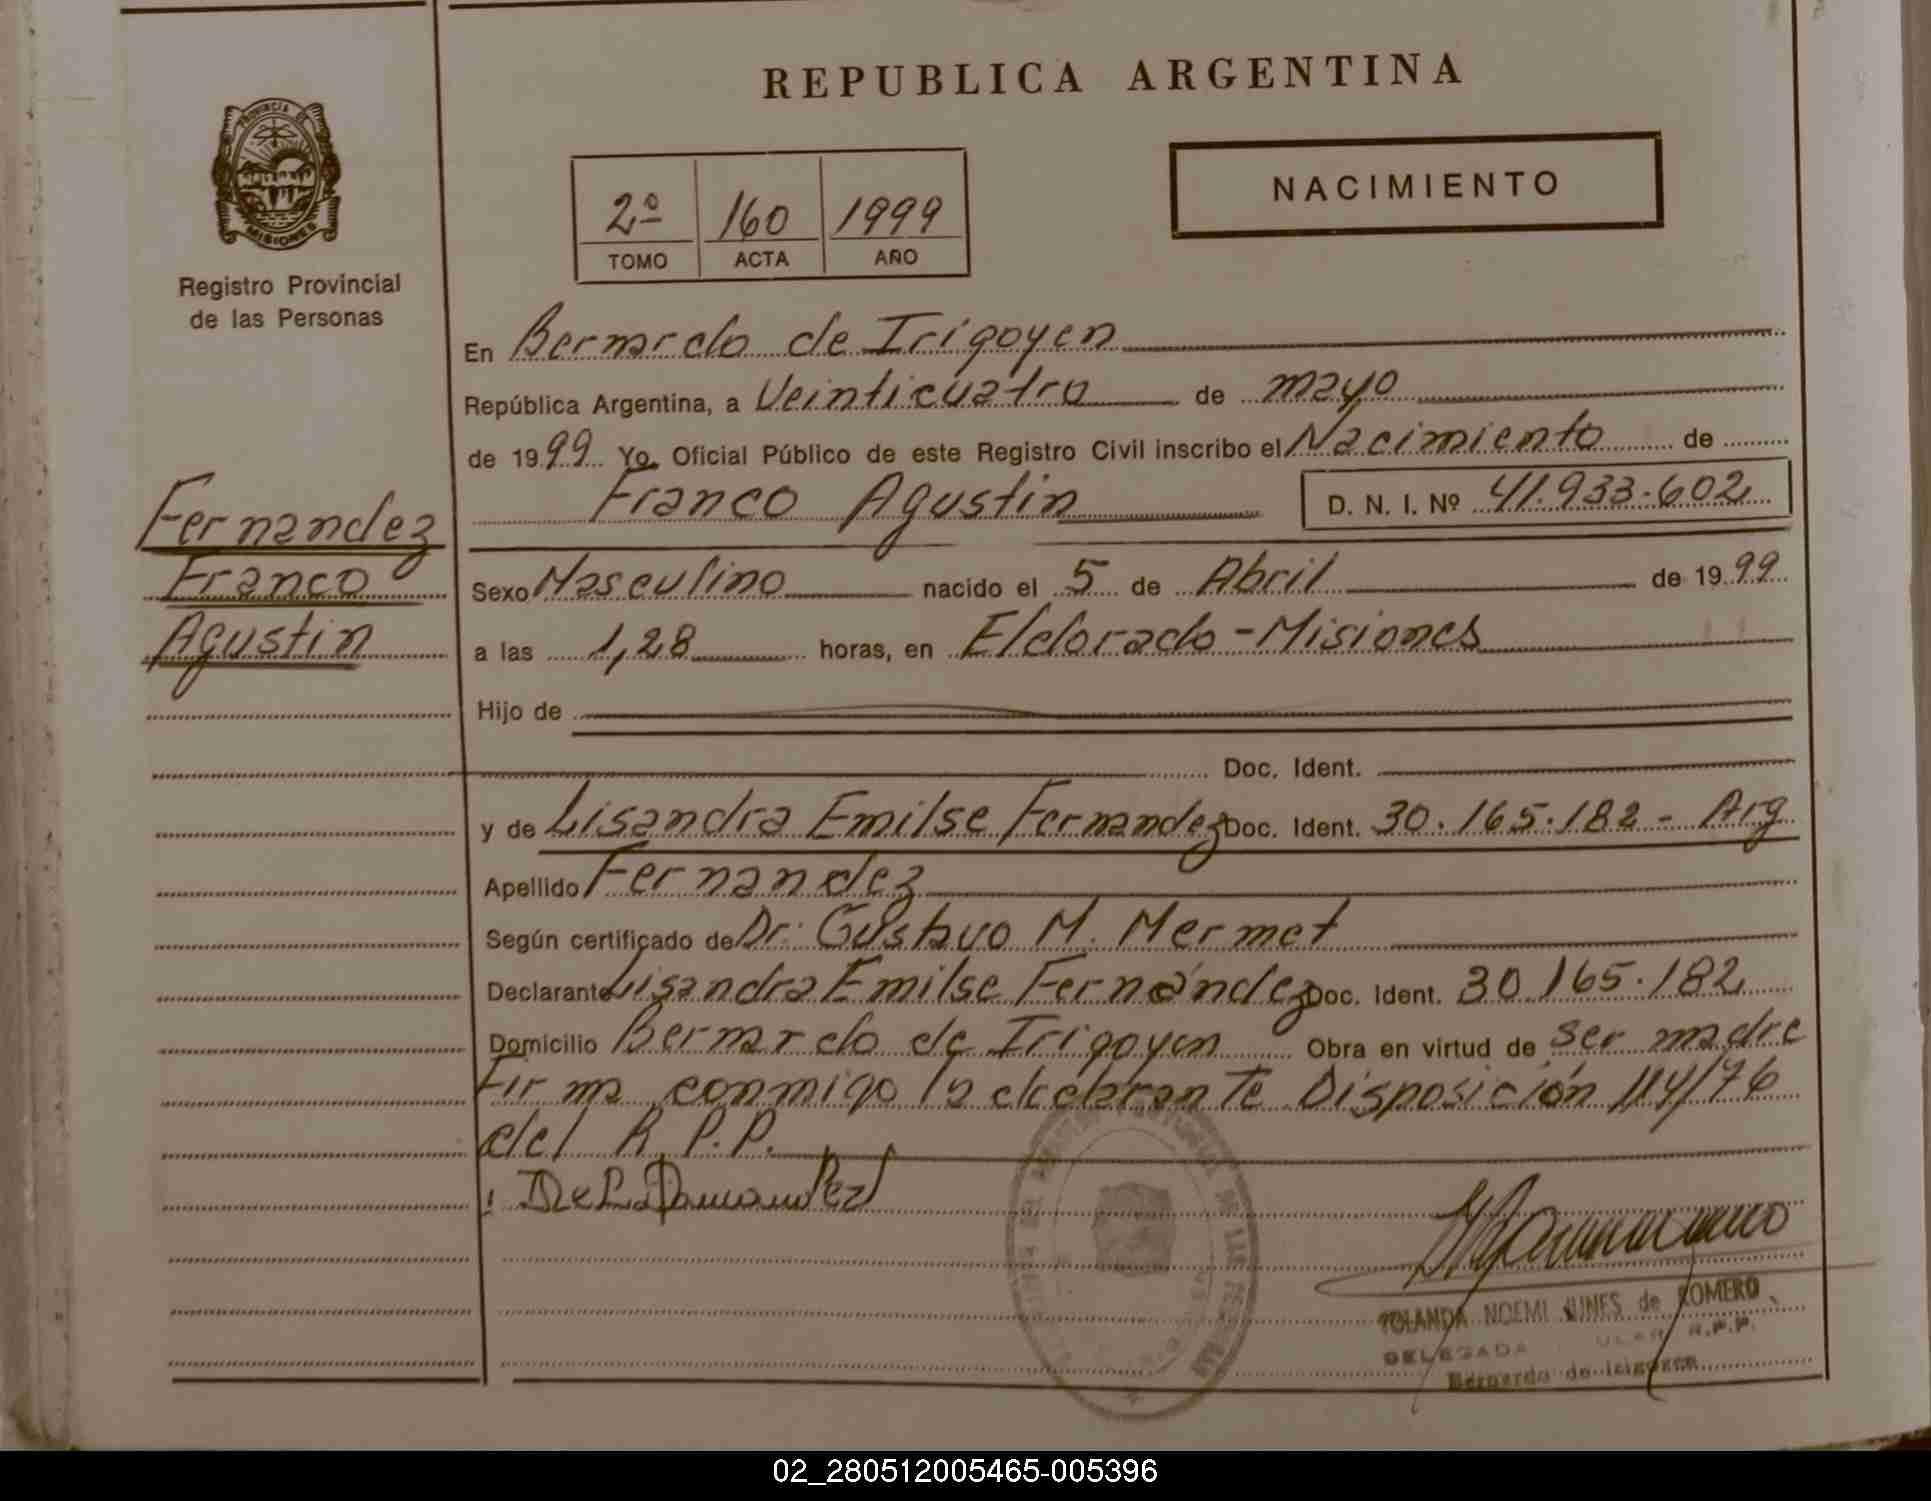 REPUBLICA ARGENTINA
PROVINCIA DE
MISIONES
Registro Provincial
de las Personas
NACIMIENTO
2º 160 1999
TOMO ACTA AÑO
En Bernardo de Irigoyen
República Argentina, a Veinticuatro de mayo
de 1999 Yo, Oficial Público de este Registro Civil inscribo el Nacimiento de
Franco Agustin D. N. I. Nº 41.933.602
Fernandez
Franco
Agustin
Sexo Masculino nacido el 5 de Abril de 1999
a las 1,28 horas, en Eldorado - Misiones
Hijo de
Doc. Ident.
y de Lisandra Emilse Fernandez Doc. Ident. 30.165.182 - Arg
Apellido Fernandez
Según certificado de Dr: Gustavo M. Mermet
Declarante Lisandra Emilse Fernández Doc. Ident. 30.165.182
Domicilio Bernardo de Irigoyen Obra en virtud de ser madre
Firma conmigo la declarante Disposición 114/76
del R.P.P.
YOLANDA NOEMI de ROMERO
DELEGADA R.P.P.
Bernardo de Irigoyen
02_280512005465-005396